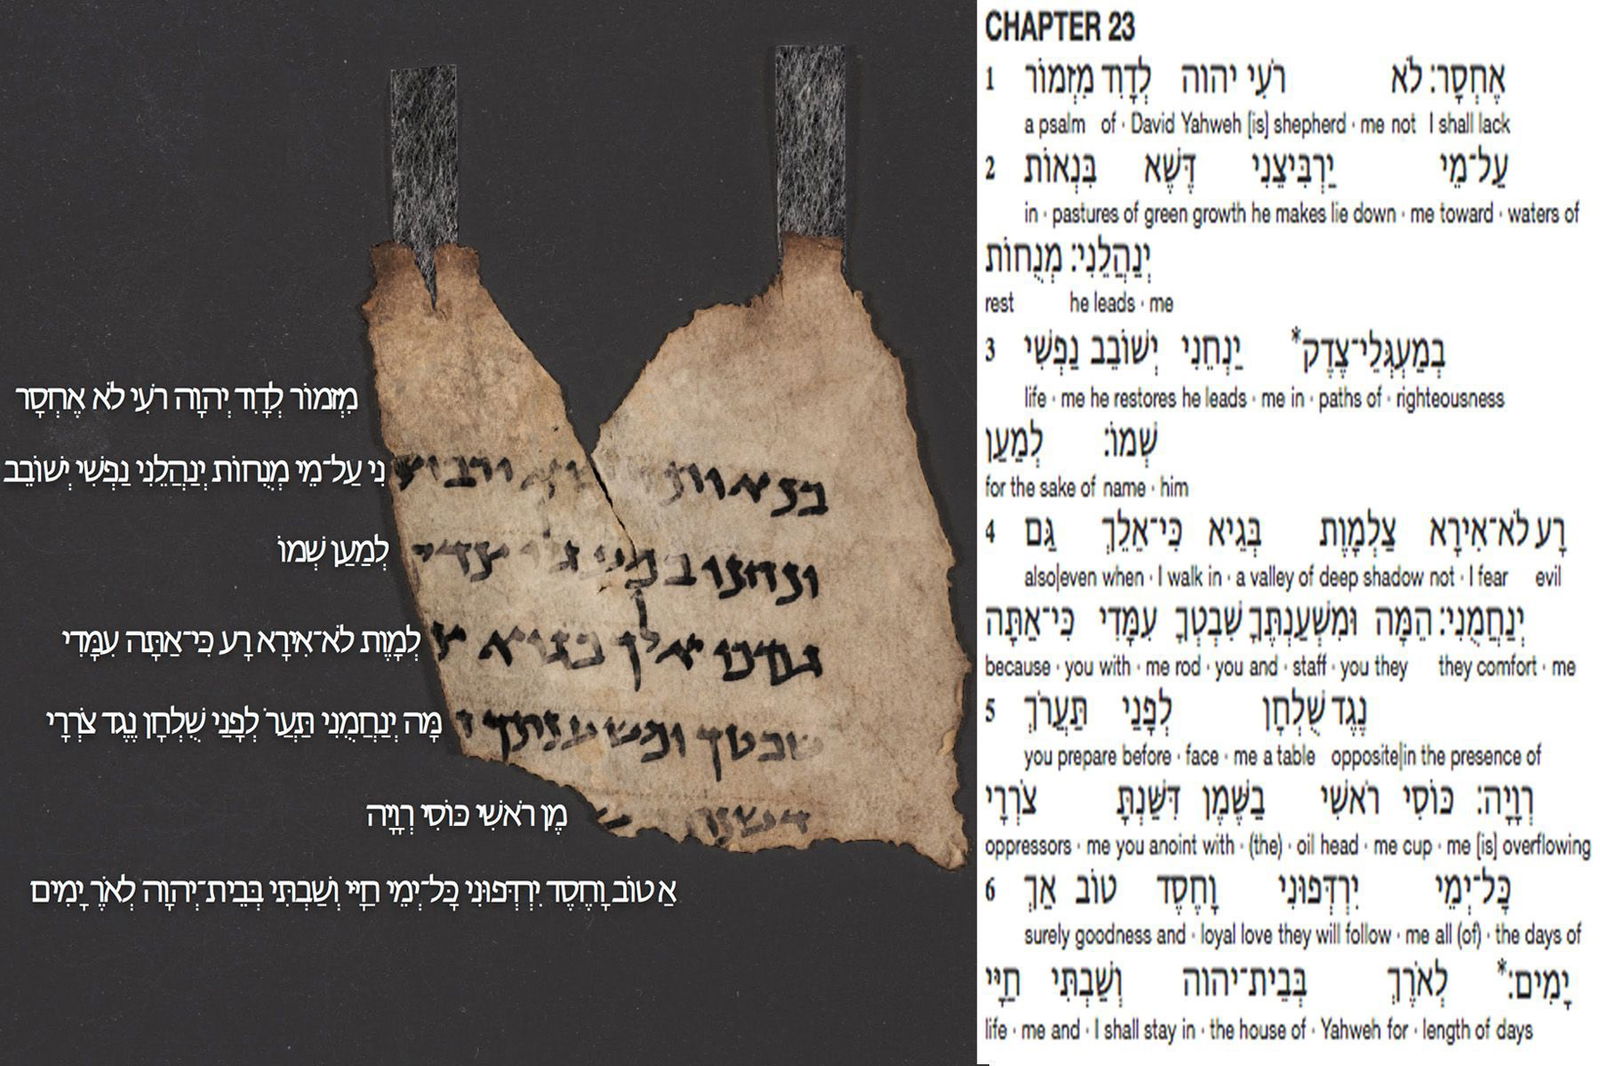 מִזְמוֹר לְדָוִד יְהוָה רֹעִי לֹא אֶחְסָר
נִי עַל־מֵי מְנֻחוֹת יְנַהֲלֵנִי נַפְשִׁי יְשׁוֹבֵב
לְמַעַן שְׁמוֹ
לְמָוֶת לֹא־אִירָא רָע כִּי־אַתָּה עִמָּדִי
שבטך ומשענתך
מָּה יְנַחֲמֻנִי תַּעֲר לְפָנַי שֻׁלְחָן נֶגֶד צֹרְרָי
מֶן רֹאשִׁי כּוֹסִי רְוָיָה
אַ טוֹב וָחֶסֶד יִרְדְּפוּנִי כָּל־יְמֵי חַיָּי וְשַׁבְתִּי בְּבֵית־יְהוָה לְאֹרֶ יָמִים
CHAPTER 23
1 מִזְמוֹר לְדָוִד יהוה רֹעִי לֹא אֶחְסָר׃
a psalm of · David Yahweh [is] shepherd · me not I shall lack
2 בִּנְאוֹת דֶּשֶׁא יַרְבִּיצֵנִי עַל־מֵי
in · pastures of green growth he makes lie down · me toward · waters of
מְנֻחוֹת יְנַהֲלֵנִי׃
rest he leads · me
3 נַפְשִׁי יְשׁוֹבֵב יַנְחֵנִי בְמַעְגְּלֵי־צֶדֶק*
life · me he restores he leads · me in · paths of · righteousness
לְמַעַן שְׁמוֹ׃
for the sake of name · him
4 גַּם כִּי־אֵלֵךְ בְּגֵיא צַלְמָוֶת לֹא־אִירָא רָע
also|even when · I walk in · a valley of deep shadow not · I fear evil
כִּי־אַתָּה עִמָּדִי שִׁבְטְךָ וּמִשְׁעַנְתֶּךָ הֵמָּה יְנַחֲמֻנִי׃
because · you with · me rod · you and · staff · you they they comfort · me
5 תַּעֲרֹךְ לְפָנַי שֻׁלְחָן נֶגֶד
you prepare before · face · me a table opposite|in the presence of
צֹרְרָי דִּשַּׁנְתָּ בַשֶּׁמֶן רֹאשִׁי כּוֹסִי רְוָיָה׃
oppressors · me you anoint with · (the) · oil head · me cup · me [is] overflowing
6 אַךְ טוֹב וָחֶסֶד יִרְדְּפוּנִי כָּל־יְמֵי
surely goodness and · loyal love they will follow · me all (of) · the days of
חַיָּי וְשַׁבְתִּי בְּבֵית־יהוה לְאֹרֶךְ יָמִים׃*
life · me and · I shall stay in · the house of · Yahweh for · length of days